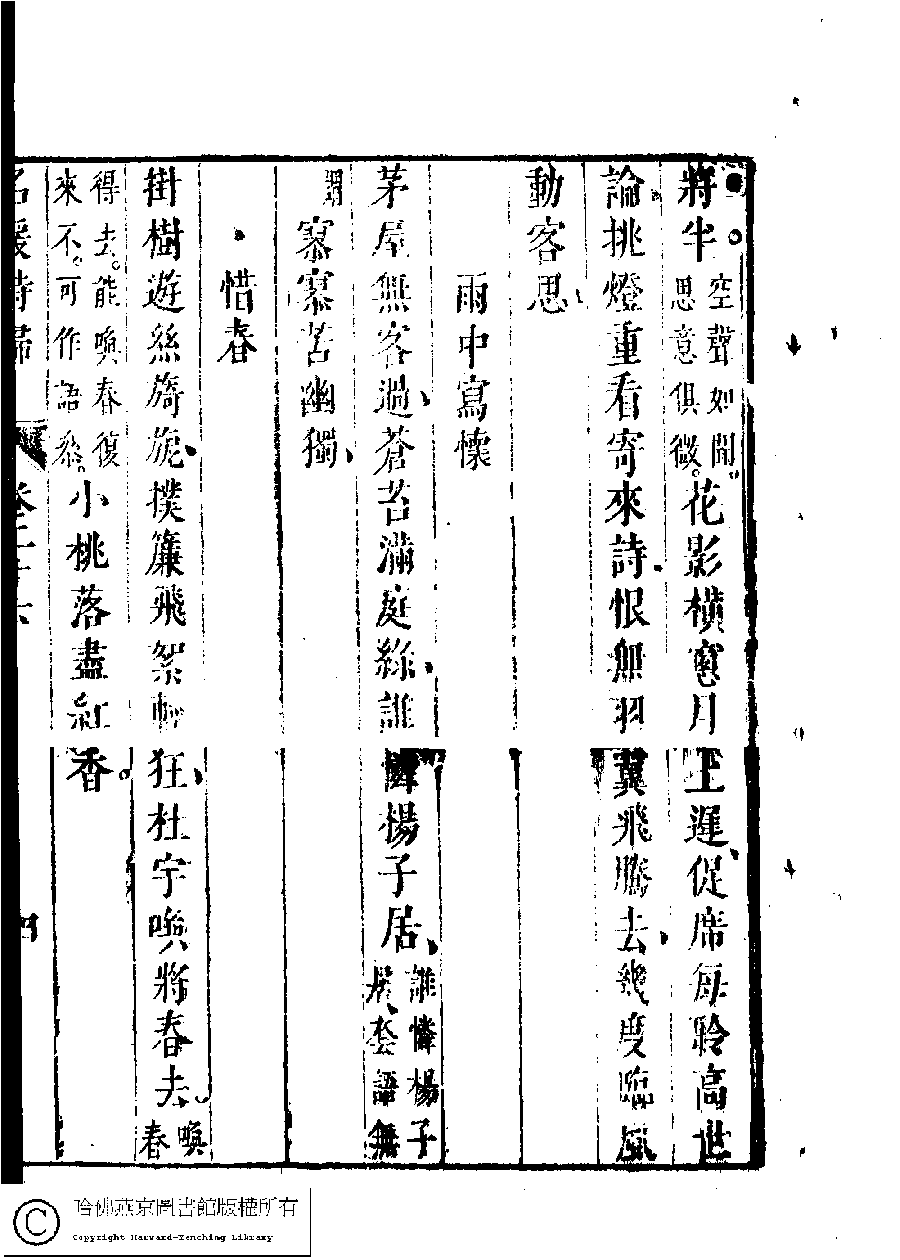 將半空聲如聞思意俱微花影橫窻月上遲促席每聆高世
論挑燈重看寄來詩恨無羽翼飛騰去幾度臨風
動客思
雨中寫懷
茅屋無客過蒼苔滿庭綠誰憐楊子居誰憐楊子居套語無
謂寡寡苦幽獨
惜春
掛樹遊絲旖旎撲簾飛絮輕狂杜宇喚將春去喚春
得去能喚春復來不可作語叅小桃落盡紅香
名媛詩歸 卷二十六 四
哈佛燕京圖書館版權所有
Copyright Harvard-Yenching Library